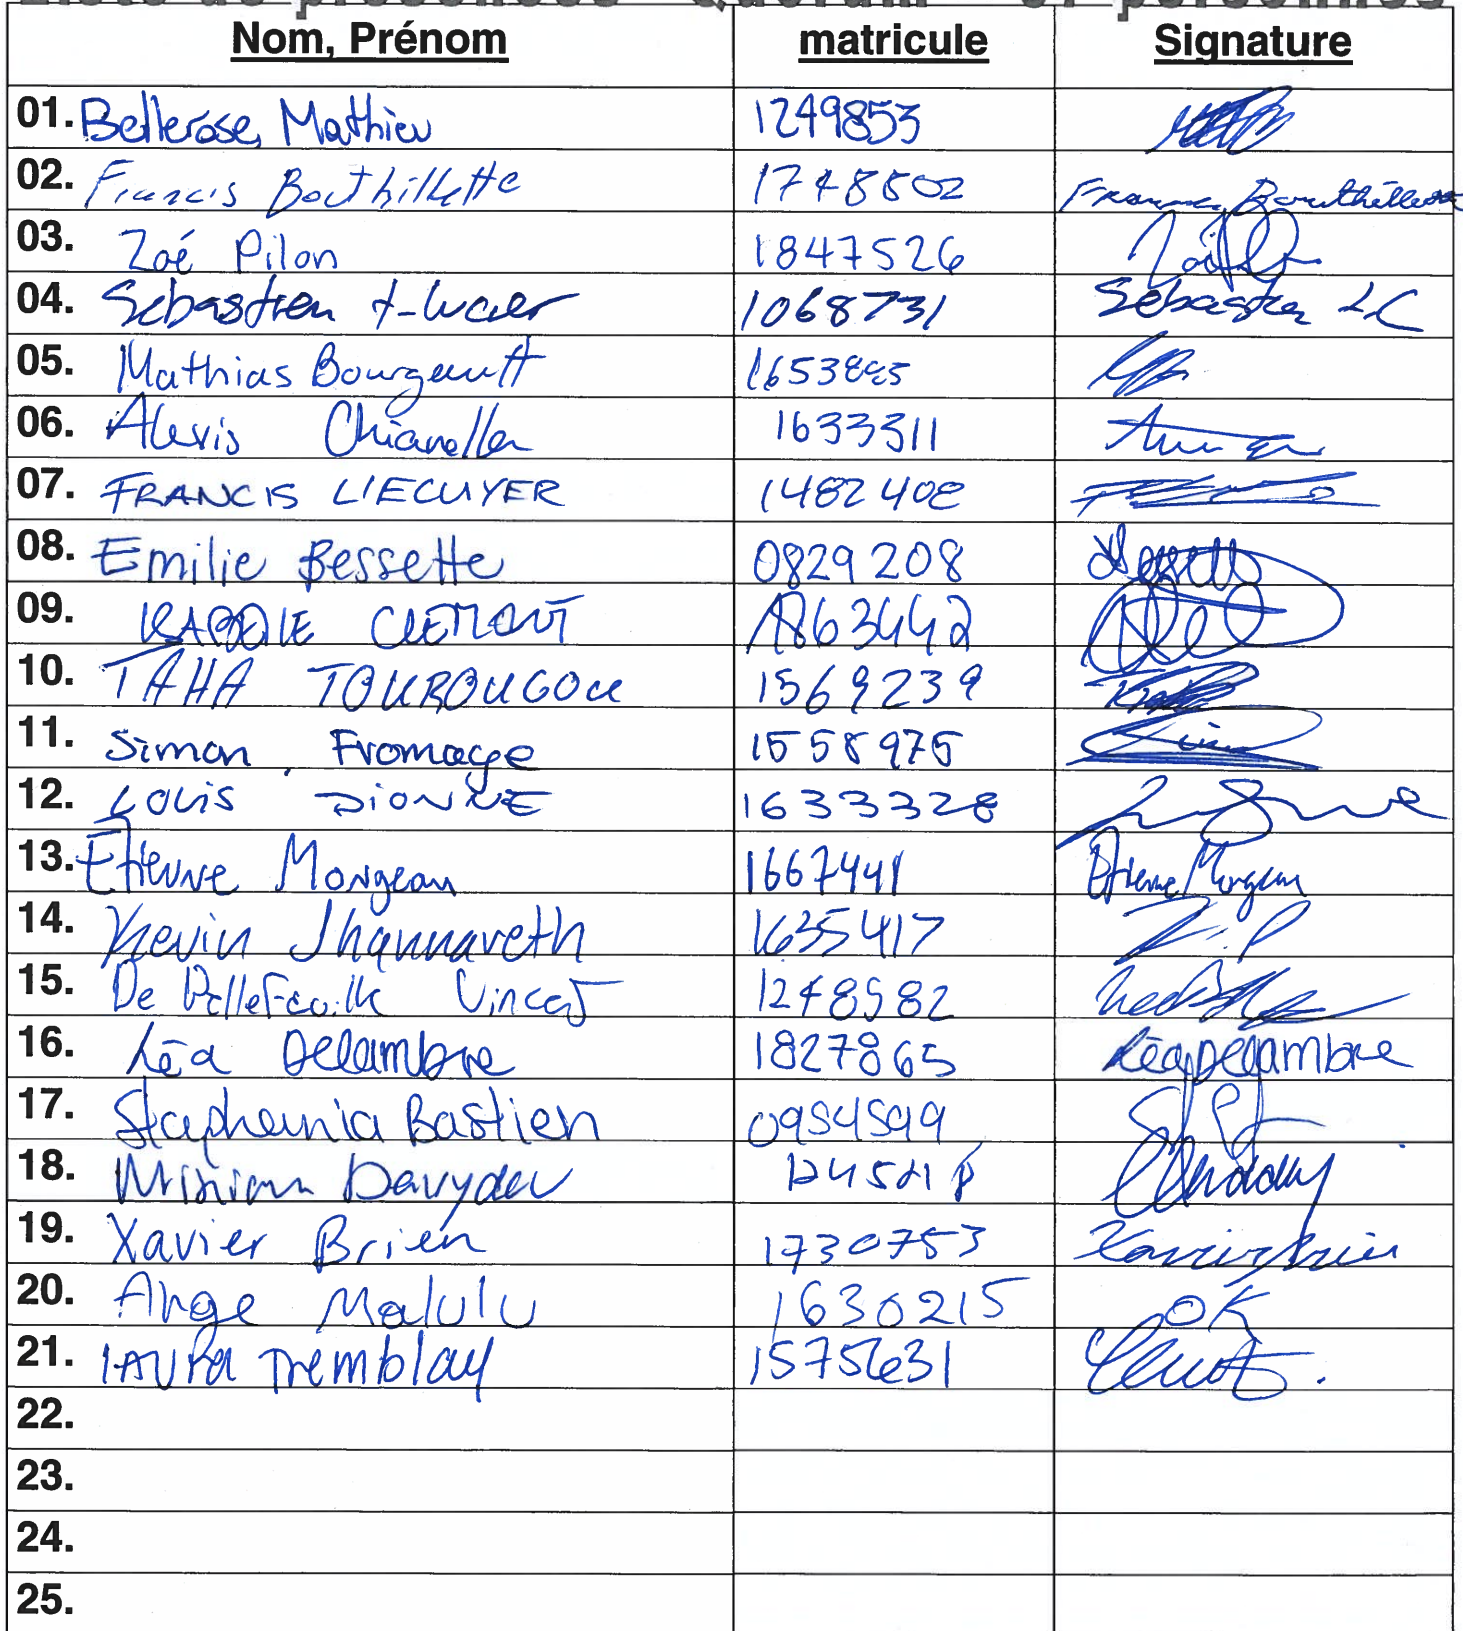 Nom, Prénom matricule Signature
01. Bellerose, Mathieu 1249853
02. Francis Bouthillette 1748502 Francis Bouthillette
03. Zoé Pilon 1847526
04. Sébastien 1068731 Sébastien LC
05. Mathias Bourgeault 1653895
06. Alexis Chiarella 1633311
07. FRANCIS L'ECUYER 1482408
08. Emilie Bessette 0829208
09. ISABELLE CLEMONT 1863442
10. TAHA TOUROUGOU 1569239
11. Simon, Fromage 1558975
12. LOUIS DIONNE 1633328
13. Etienne Mongeau 1667441 Etienne Mongeau
14. Kevin Jhannaveth 1635417
15. De Bellefeuille Vincent 1248982
16. Léa Delambre 1827865 Léa Delambre
17. Stephania Bastien 0954599
18. Miriam Davydov
19. Xavier Brien 1730753 Xavier Brien
20. Ange Malulu 1630215 OK
21. LAURA Tremblay 1575631
22.
23.
24.
25.